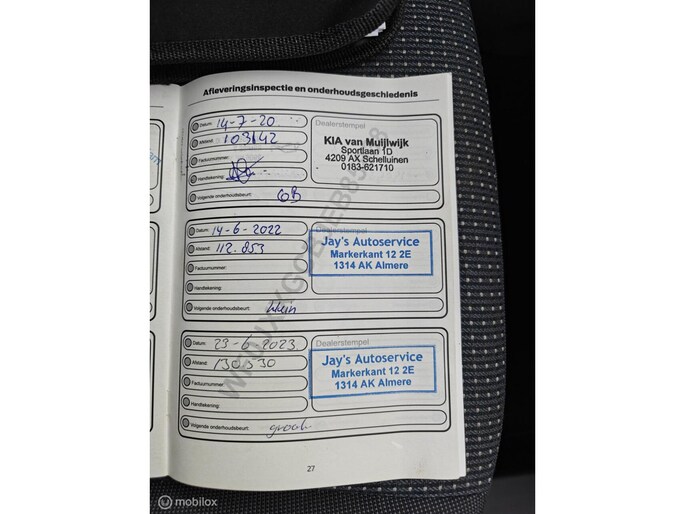 Afleveringsinspectie en onderhoudsgeschiedenis
Datum: 14-7-20
Afstand: 103142
Factuurnummer:
Handtekening:
Volgende onderhoudsbeurt: GB
Dealerstempel
KIA van Muijlwijk
Sportlaan 1D
4209 AX Schelluinen
0183-621710
Datum: 14-6-2022
Afstand: 112.853
Factuurnummer:
Handtekening:
Volgende onderhoudsbeurt: klein
Dealerstempel
Jay's Autoservice
Markerkant 12 2E
1314 AK Almere
Datum: 23-6-2023
Afstand: 130330
Factuurnummer:
Handtekening:
Volgende onderhoudsbeurt: groot
Dealerstempel
Jay's Autoservice
Markerkant 12 2E
1314 AK Almere
27
mobilox